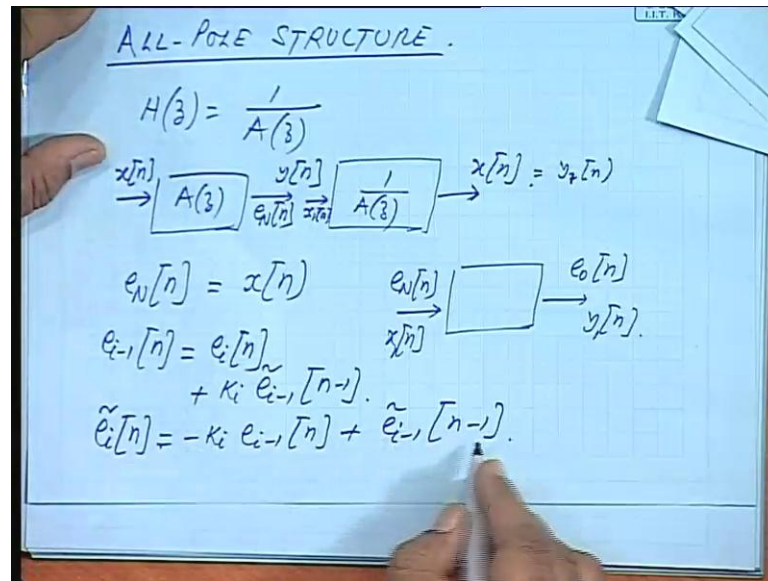 I.I.T. K
ALL-POLE STRUCTURE.
H(z) = 1 / A(z)
x[n] → A(z) → y[n] e_N[n] x_1[n] → 1 / A(z) → x[n] = y_1(n)
e_N[n] = x[n]
e_N[n] x_1[n] → e_0[n] y_1[n].
e_{i-1}[n] = e_i[n]
+ K_i ẽ_{i-1}[n-1].
ẽ_i[n] = -K_i e_{i-1}[n] + ẽ_{i-1}[n-1].